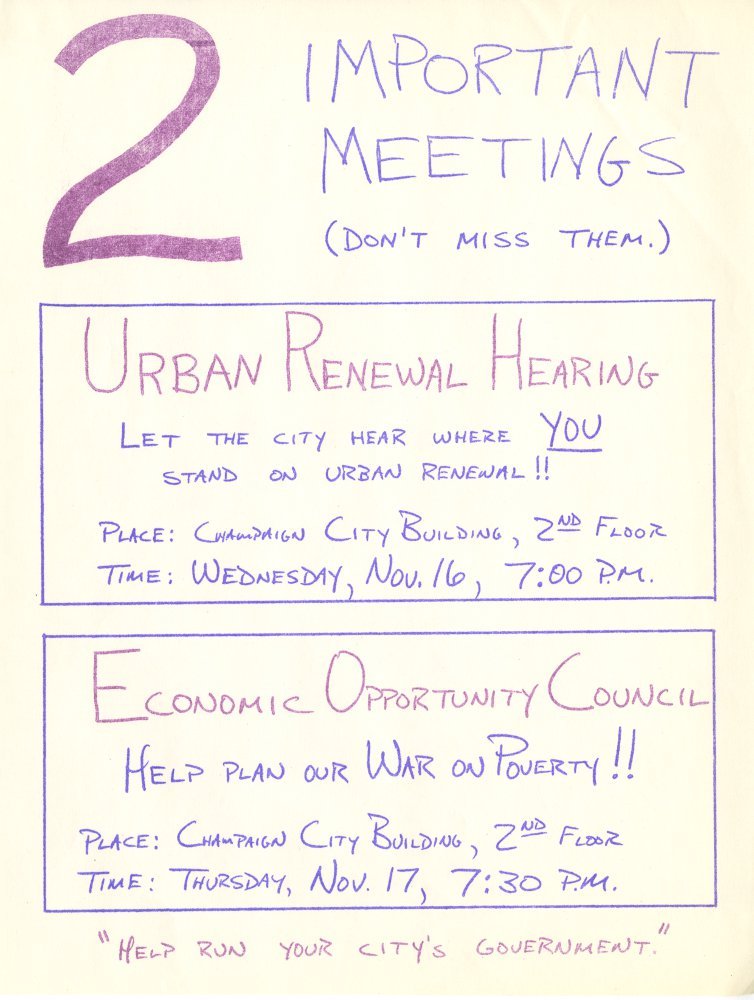 2 IMPORTANT
MEETINGS
(DON'T MISS THEM.)
URBAN RENEWAL HEARING
LET THE CITY HEAR WHERE YOU
STAND ON URBAN RENEWAL!!
PLACE: CHAMPAIGN CITY BUILDING, 2ND FLOOR
TIME: WEDNESDAY, NOV. 16, 7:00 P.M.
ECONOMIC OPPORTUNITY COUNCIL
HELP PLAN OUR WAR ON POVERTY!!
PLACE: CHAMPAIGN CITY BUILDING, 2ND FLOOR
TIME: THURSDAY, NOV. 17, 7:30 P.M.
"HELP RUN YOUR CITY'S GOVERNMENT."